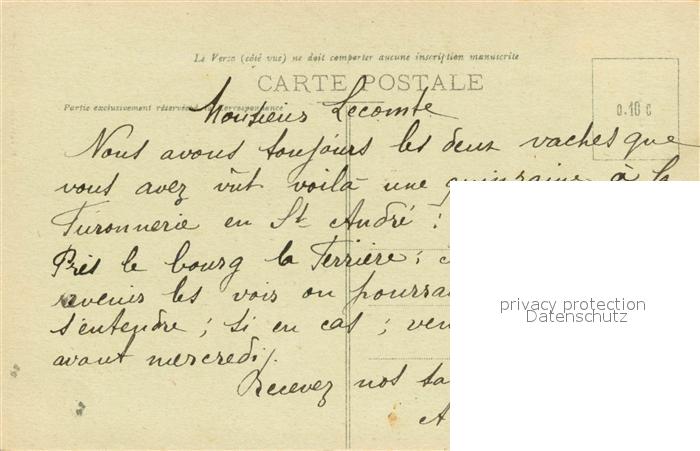 Le Verso (côté vue) ne doit comporter aucune inscription manuscrite
CARTE POSTALE
Partie exclusivement réservée à la correspondance
0.10 c
Monsieur Lecomte
Nous avons toujours les deux vaches que
vous avez vût voilà une quinzaine à la
Tironnerie en St André :
Près le bourg la Terrière ;
revenir les vois on pourrai
s'entendre ; si en cas ; ven
avant mercredi.
Recevez nos sa
A
privacy protection
Datenschutz